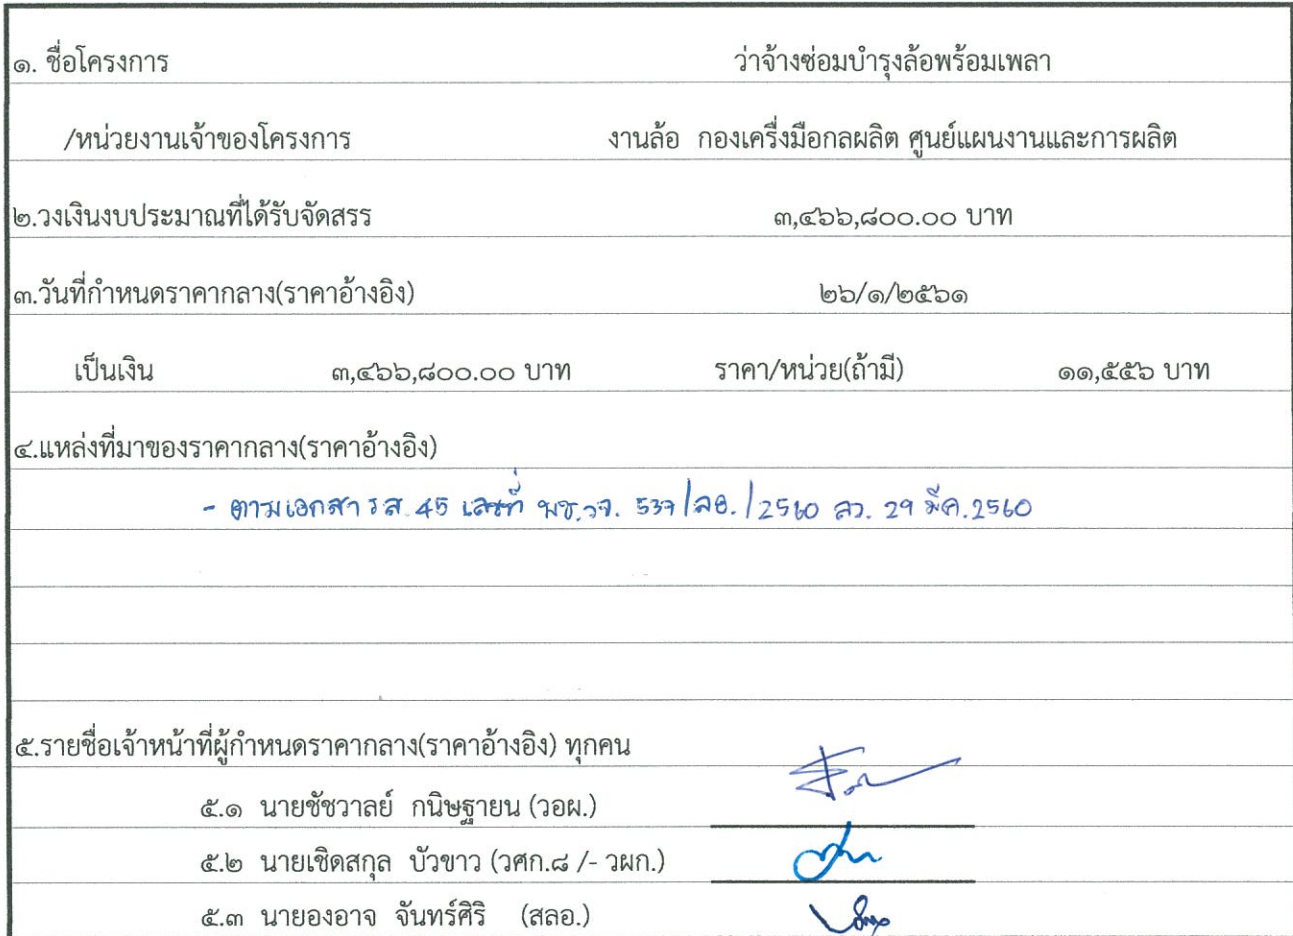 ๑. ชื่อโครงการ ว่าจ้างซ่อมบำรุงล้อพร้อมเพลา
/หน่วยงานเจ้าของโครงการ งานล้อ กองเครื่งมือกลผลิต ศูนย์แผนงานและการผลิต
๒.วงเงินงบประมาณที่ได้รับจัดสรร ๓,๔๖๖,๘๐๐.๐๐ บาท
๓.วันที่กำหนดราคากลาง(ราคาอ้างอิง) ๒๖/๑/๒๕๖๑
เป็นเงิน ๓,๔๖๖,๘๐๐.๐๐ บาท ราคา/หน่วย(ถ้ามี) ๑๑,๕๕๖ บาท
๔.แหล่งที่มาของราคากลาง(ราคาอ้างอิง)
- ตามเอกสาร ส. 45 เลขที่ 537/ลอ./2560 ลว. 29 มีค.2560
๕.รายชื่อเจ้าหน้าที่ผู้กำหนดราคากลาง(ราคาอ้างอิง) ทุกคน
๕.๑ นายชัชวาลย์ กนิษฐายน (วอผ.)
๕.๒ นายเชิดสกุล บัวขาว (วศก.๘ /- วผก.)
๕.๓ นายองอาจ จันทร์ศิริ (สลอ.)